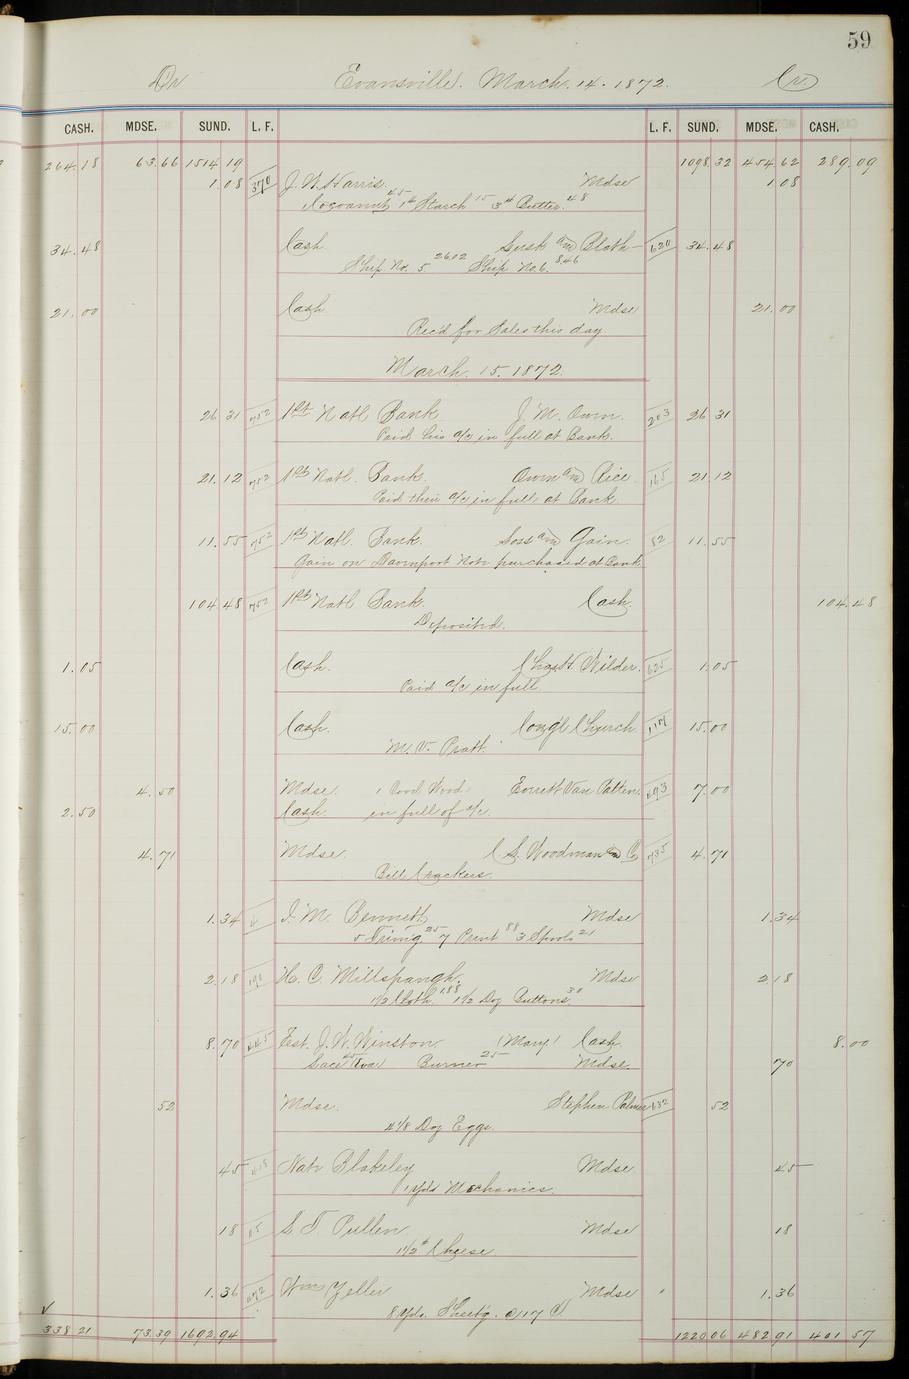 59
Dr Evansville. March. 14. 1872. Cr
CASH. MDSE. SUND. L. F. L. F. SUND. MDSE. CASH.
264.18 63.66 1514.19 1098.32 454.62 289.09
1.08 370 J. W. Harris. Mdse 1.08
Cocoanut 1 lb Starch 15 3 lb Butter. 48
34.48 Cash 620 34.48
Ship No. 5 26.02 Ship No. 6. 8.46
21.00 Cash Mdse 21.00
Rec'd for Sales this day.
March. 15. 1872.
26 31 752 1st Natl Bank J. M. Owen. 203 26 31
Paid his a/c in full at Bank.
21.12 752 1st Natl. Bank. Owen and Rice 165 21.12
Paid their a/c in full at Bank
11.55 752 1st Natl. Bank. Loss and Gain. 82 11.55
Gain on Davenport Note purchased at Bank
104.48 752 1st Natl Bank. Cash. 104.48
Deposited.
1.05 Cash. Chas H. Wilder. 625 1.05
Paid a/c in full
15.00 Cash. Cong'l Church 15.00
M. V. Pratt.
4.50 Mdse. 1 Cord Wood. Van Patten. 493 7.00
2.50 Cash. in full of a/c.
4.71 Mdse. C. S. Woodman & Co 785 4.71
Bill Crackers.
1.34 J. M. Bennett Mdse 1.34
5 Trim'g 25 7 Print 88 3 Spools 21
2.18 H. C. Millspaugh. Mdse 2.18
1 1/2 Cloth 1.88 1 1/2 Doz Buttons. 30
8.70 445 Est. J. W. Winston. (Mary) Cash. 8.00
Lace 45 Burner 25 Mdse. 70
52 Mdse. Stephen Palmer 632 52
4 1/8 Doz Eggs.
45 Nate Blakeley Mdse 45
1 Yds Mechanics.
18 S. T. Pullen Mdse 18
1 1/2 # Cheese
1.36 Wm Zeller Mdse 1.36
8 Yds. Sheet'g. @ 17 c
338 21 73.39 1692.94 1220 06 482 91 401 57